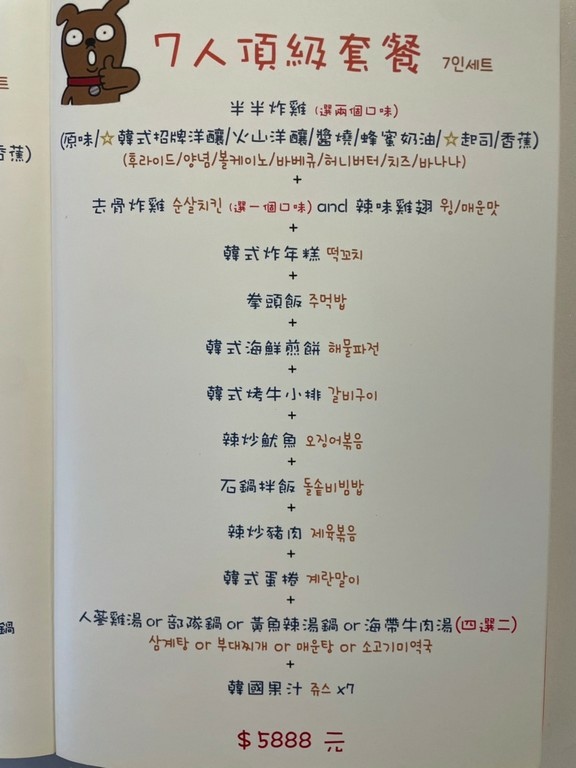 7人頂級套餐 7인세트
半半炸雞 (選兩個口味)
(原味/☆韓式招牌洋釀/火山洋釀/醬燒/蜂蜜奶油/☆起司/香蕉)
(후라이드/양념/볼케이노/바베큐/허니버터/치즈/바나나)
+
去骨炸雞 순살치킨 (選一個口味) and 辣味雞翅 윙/매운맛
+
韓式炸年糕 떡꼬치
+
拳頭飯 주먹밥
+
韓式海鮮煎餅 해물파전
+
韓式烤牛小排 갈비구이
+
辣炒魷魚 오징어볶음
+
石鍋拌飯 돌솥비빔밥
+
辣炒豬肉 제육볶음
+
韓式蛋捲 계란말이
+
人蔘雞湯 or 部隊鍋 or 黃魚辣湯鍋 or 海帶牛肉湯(四選二)
삼계탕 or 부대찌개 or 매운탕 or 소고기미역국
+
韓國果汁 쥬스 x7
$5888 元
蕉)
鍋